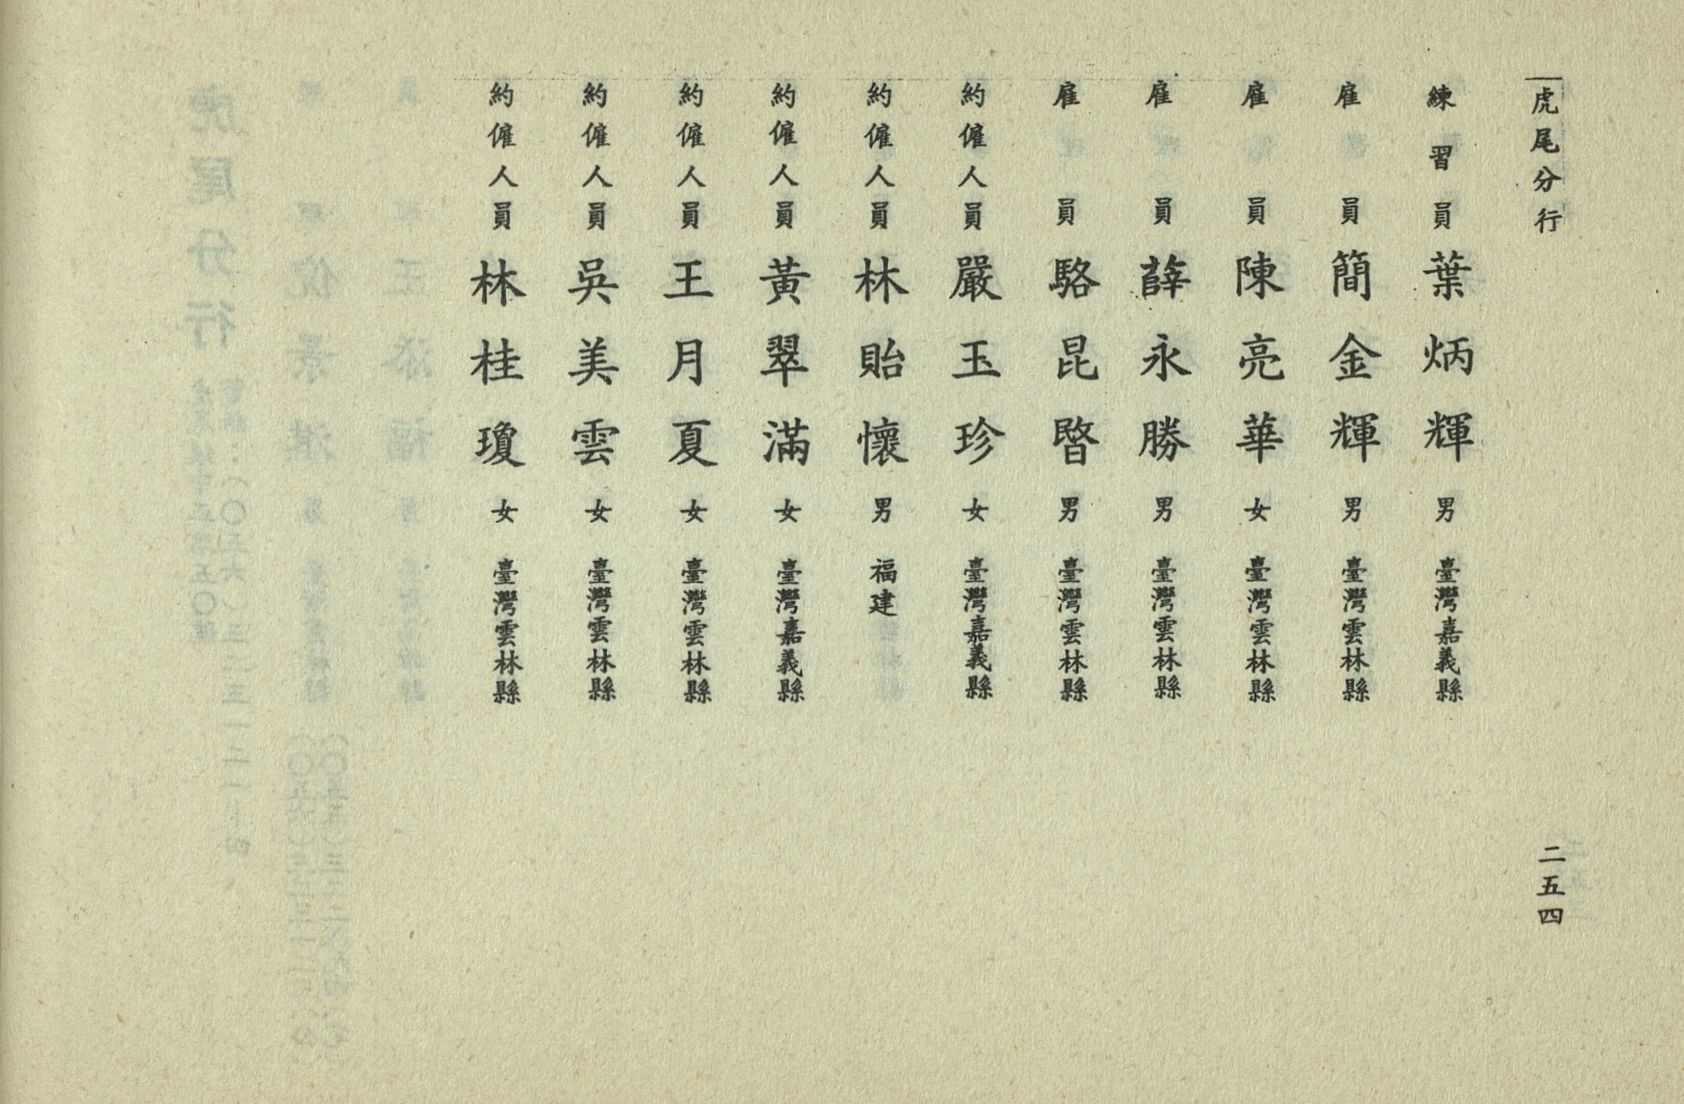 虎尾分行
二五四
練習員 葉炳輝 男 臺灣嘉義縣
雇員 簡金輝 男 臺灣雲林縣
雇員 陳亮華 女 臺灣雲林縣
雇員 薛永勝 男 臺灣雲林縣
雇員 駱昆暋 男 臺灣雲林縣
約僱人員 嚴玉珍 女 臺灣嘉義縣
約僱人員 林貽懷 男 福建
約僱人員 黃翠滿 女 臺灣嘉義縣
約僱人員 王月夏 女 臺灣雲林縣
約僱人員 吳美雲 女 臺灣雲林縣
約僱人員 林桂瓊 女 臺灣雲林縣